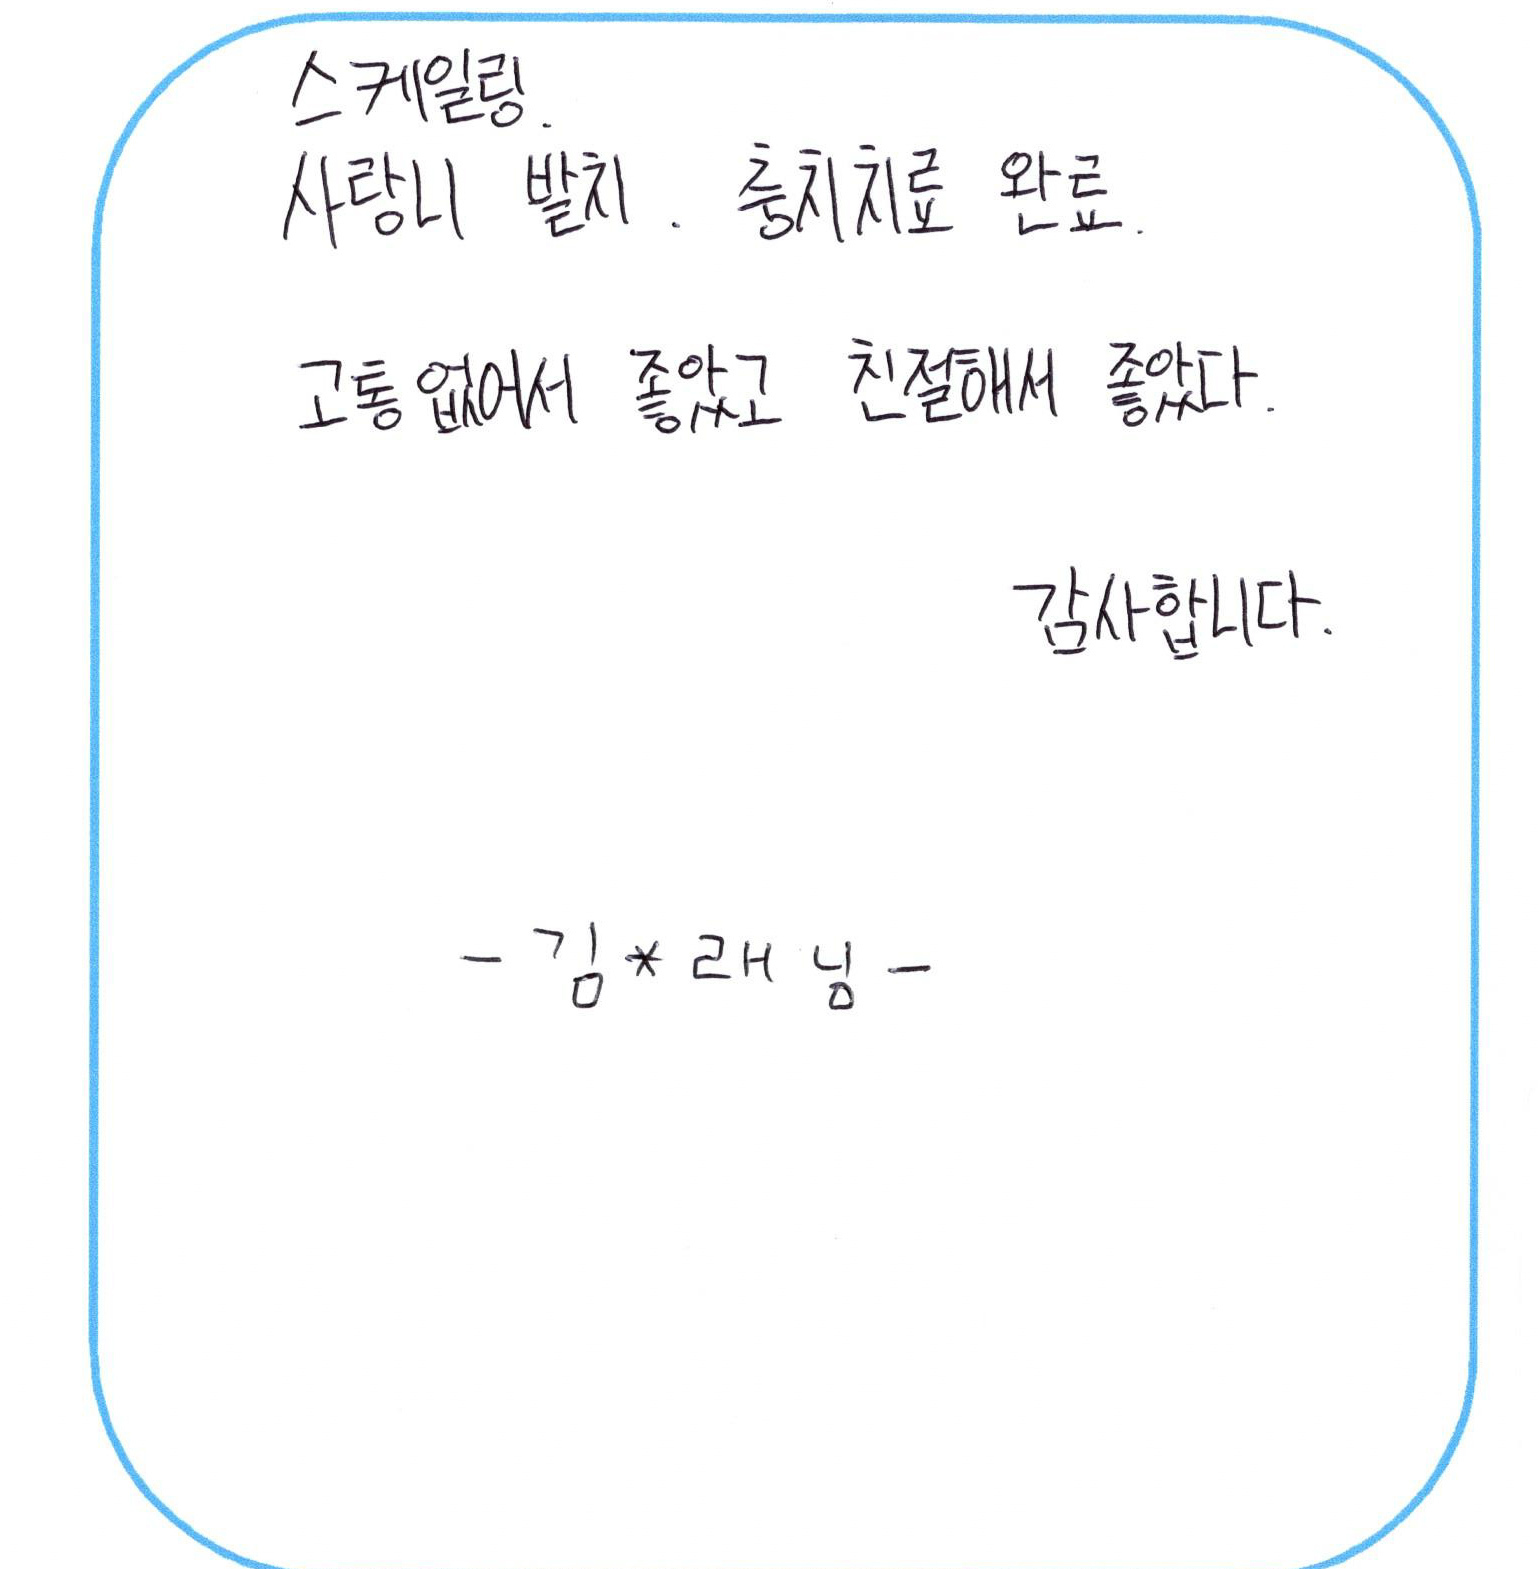 스케일링.
사랑니 발치. 충치치료 완료.
고통없어서 좋았고 친절해서 좋았다.
감사합니다.
- 김*래 님 -